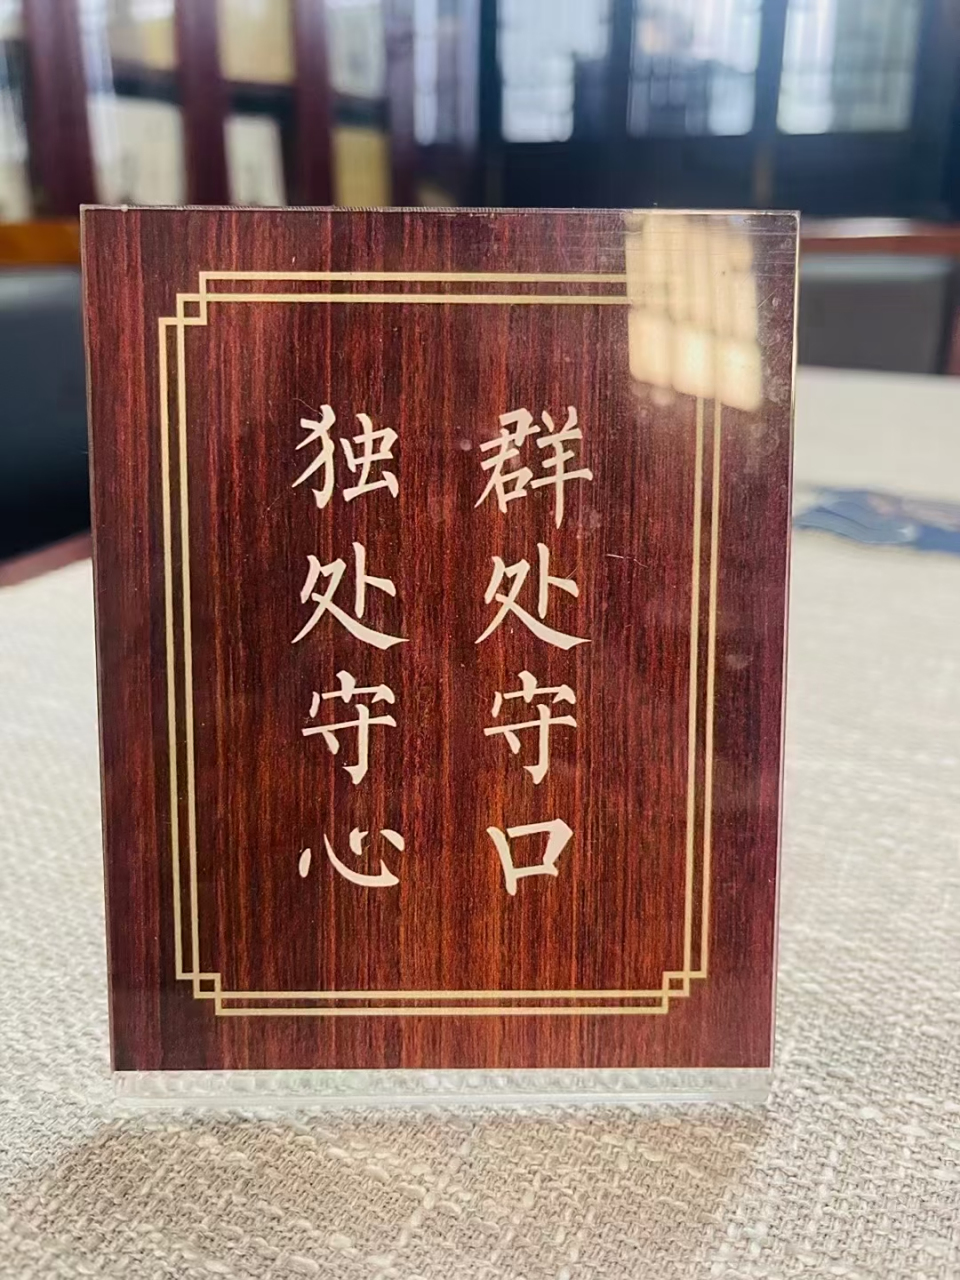 群处守口
独处守心